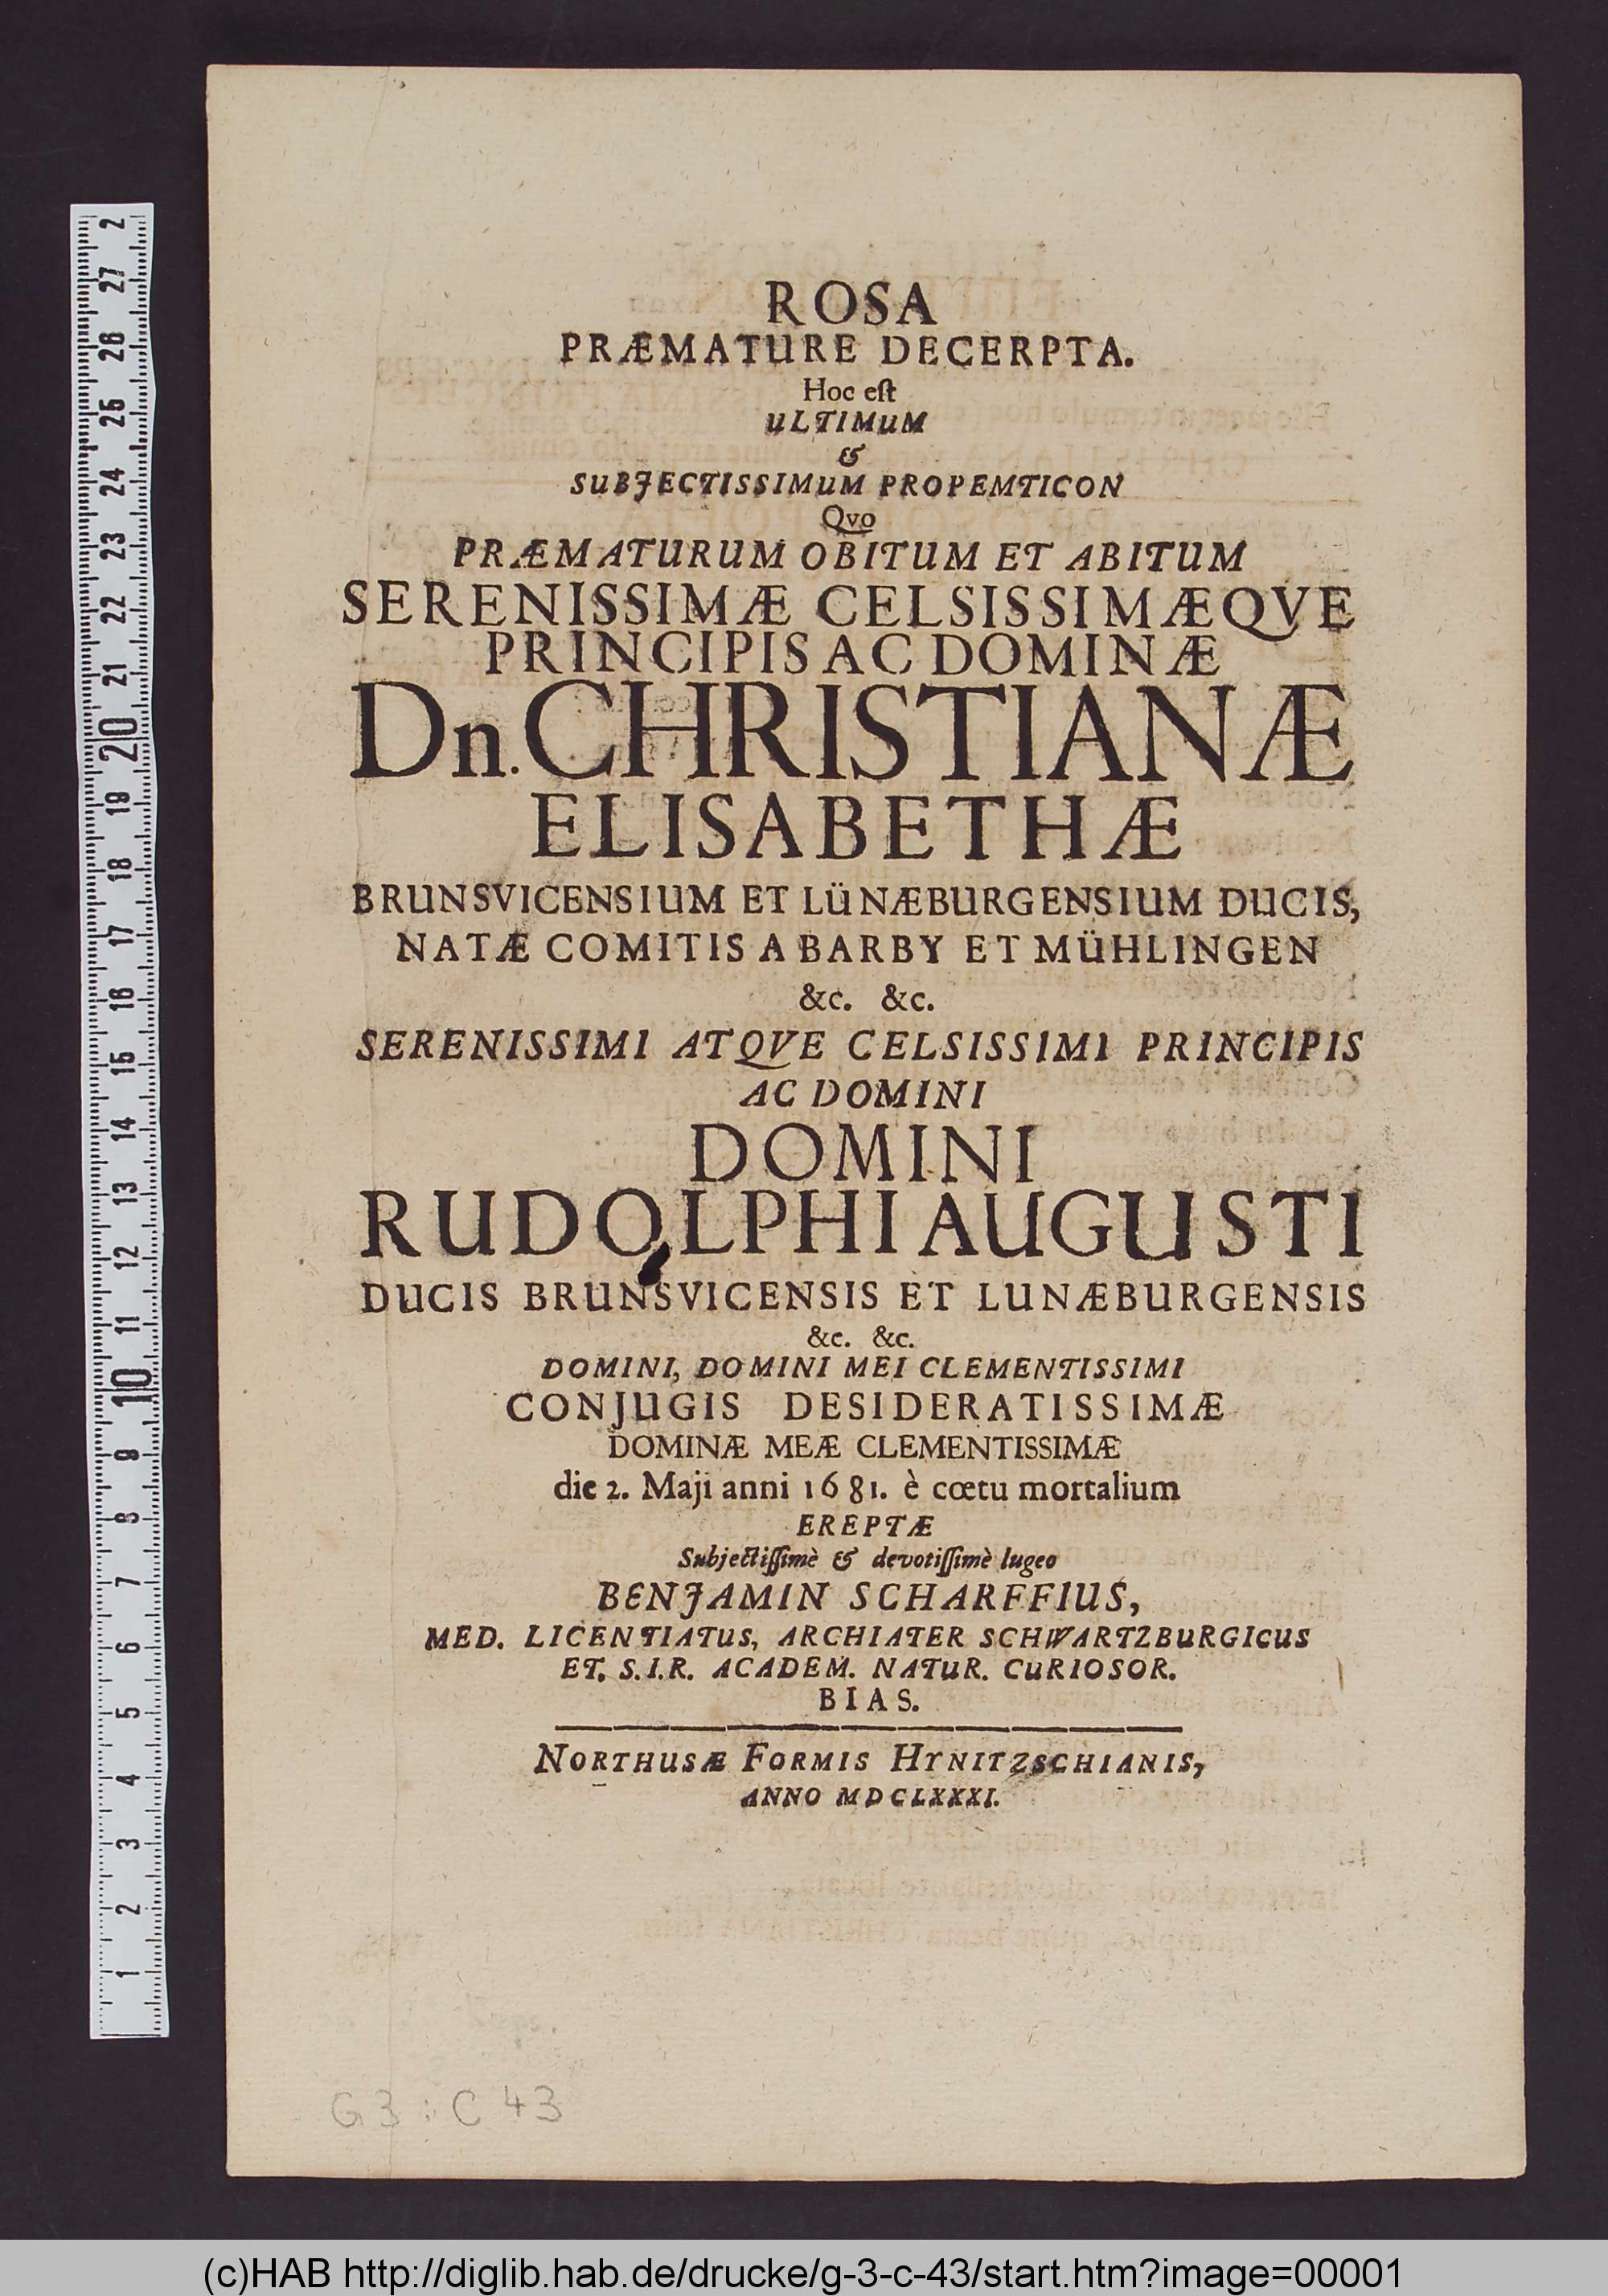 ROSA
PRÆMATURE DECERPTA.
Hoc eſt
ULTIMUM
&
SUBJECTISSIMUM PROPEMTICON
Qvo
PRÆMATURUM OBITUM ET ABITUM
SERENISSIMÆ CELSISSIMÆQVE
PRINCIPIS AC DOMINÆ
Dn. CHRISTIANÆ
ELISABETHÆ
BRUNSVICENSIUM ET LÜNÆBURGENSIUM DUCIS,
NATÆ COMITIS A BARBY ET MÜHLINGEN
&c. &c.
SERENISSIMI ATQVE CELSISSIMI PRINCIPIS
AC DOMINI
DOMINI
RUDOLPHI AUGUSTI
DUCIS BRUNSVICENSIS ET LUNÆBURGENSIS
&c. &c.
DOMINI, DOMINI MEI CLEMENTISSIMI
CONJUGIS DESIDERATISSIMÆ
DOMINÆ MEÆ CLEMENTISSIMÆ
die 2. Maji anni 1681. è cœtu mortalium
EREPTÆ
Subjectiſſimè & devotiſſimè lugeo
BENJAMIN SCHARFFIUS,
MED. LICENTIATUS, ARCHIATER SCHWARTZBURGICUS
ET. S.I.R. ACADEM. NATUR. CURIOSOR.
BIAS.
NORTHUSÆ FORMIS HYNITZSCHIANIS,
ANNO MDCLXXXI.
G3 : C 43
2
27
26
25
24
23
22
21
20
19
18
17
16
15
14
13
12
11
10
9
8
7
6
5
4
3
2
1
(c)HAB http://diglib.hab.de/drucke/g-3-c-43/start.htm?image=00001